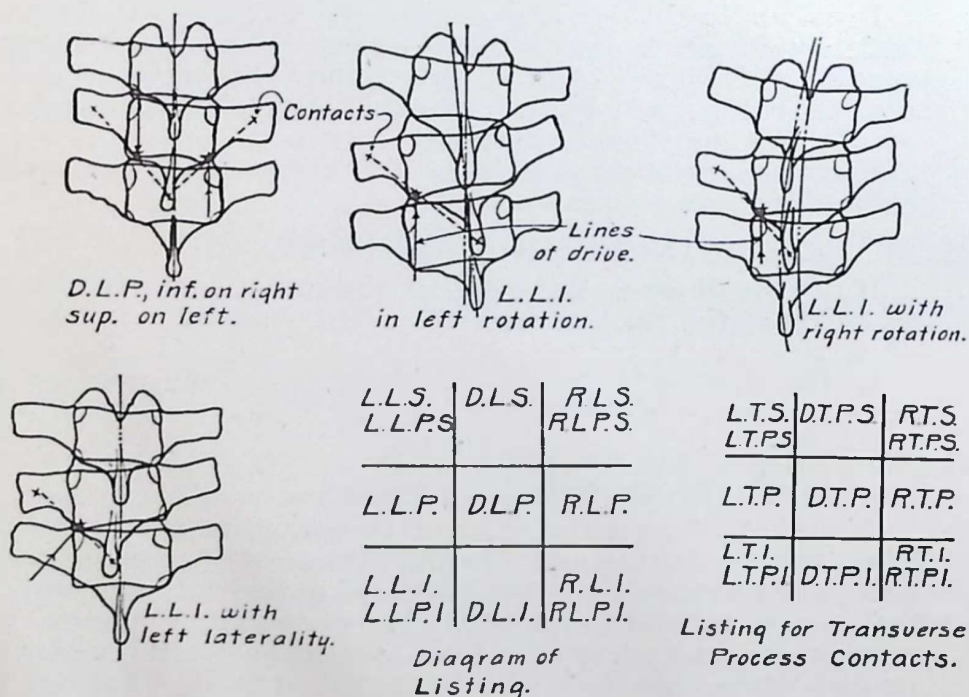 Contacts
D.L.P., inf. on right
sup. on left.
Lines
of drive.
L.L.I.
in left rotation.
L.L.I. with
right rotation.
L.L.I. with
left laterality.
L.L.S. D.L.S. R.L.S.
L.L.P.S R.L.P.S.
L.L.P. D.L.P. R.L.P.
L.L.I. R.L.I.
L.L.P.I D.L.I. R.L.P.I.
Diagram of
Listing.
L.T.S. D.T.P.S. R.T.S.
L.T.P.S R.T.P.S.
L.T.P. D.T.P. R.T.P.
L.T.I. R.T.I.
L.T.P.I. D.T.P.I. R.T.P.I.
Listing for Transverse
Process Contacts.